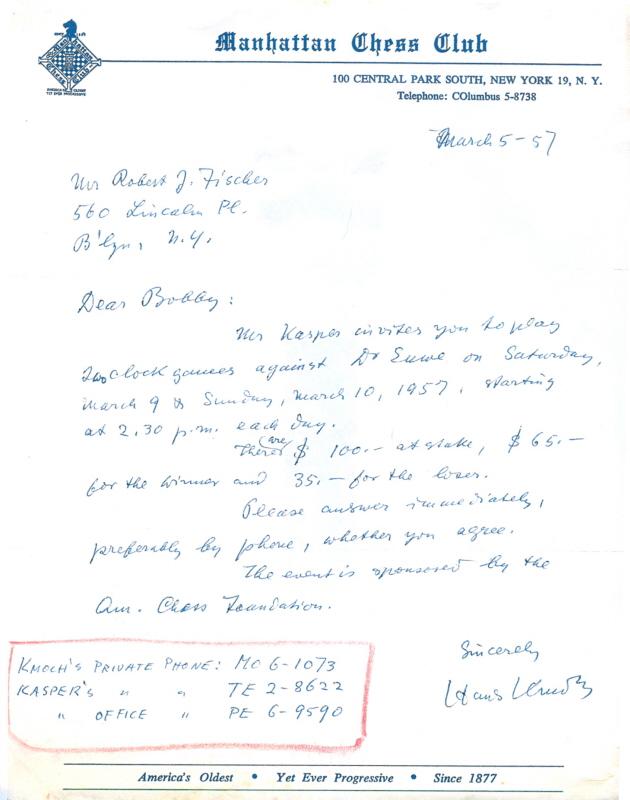 Manhattan Chess Club
AMERICA'S OLDEST
YET EVER PROGRESSIVE
100 CENTRAL PARK SOUTH, NEW YORK 19, N. Y.
Telephone: COlumbus 5-8738
March 5-57
Mr Robert J. Fischer
560 Lincoln Pl.
B'lyn, N.Y.
Dear Bobby:
Mr Kasper invites you to play
two clock games against Dr Euwe on Saturday,
March 9 & Sunday, March 10, 1957, starting
at 2.30 p.m. each day.
There (are) $ 100.- at stake, $ 65.-
for the winner and 35.- for the loser.
Please answer immediately,
preferably by phone, whether you agree.
The event is sponsored by the
Am. Chess Foundation.
Sincerely
Hans Kmoch
KMOCH'S PRIVATE PHONE: MO 6-1073
KASPER'S " " TE 2-8622
" OFFICE " PE 6-9590
America's Oldest • Yet Ever Progressive • Since 1877